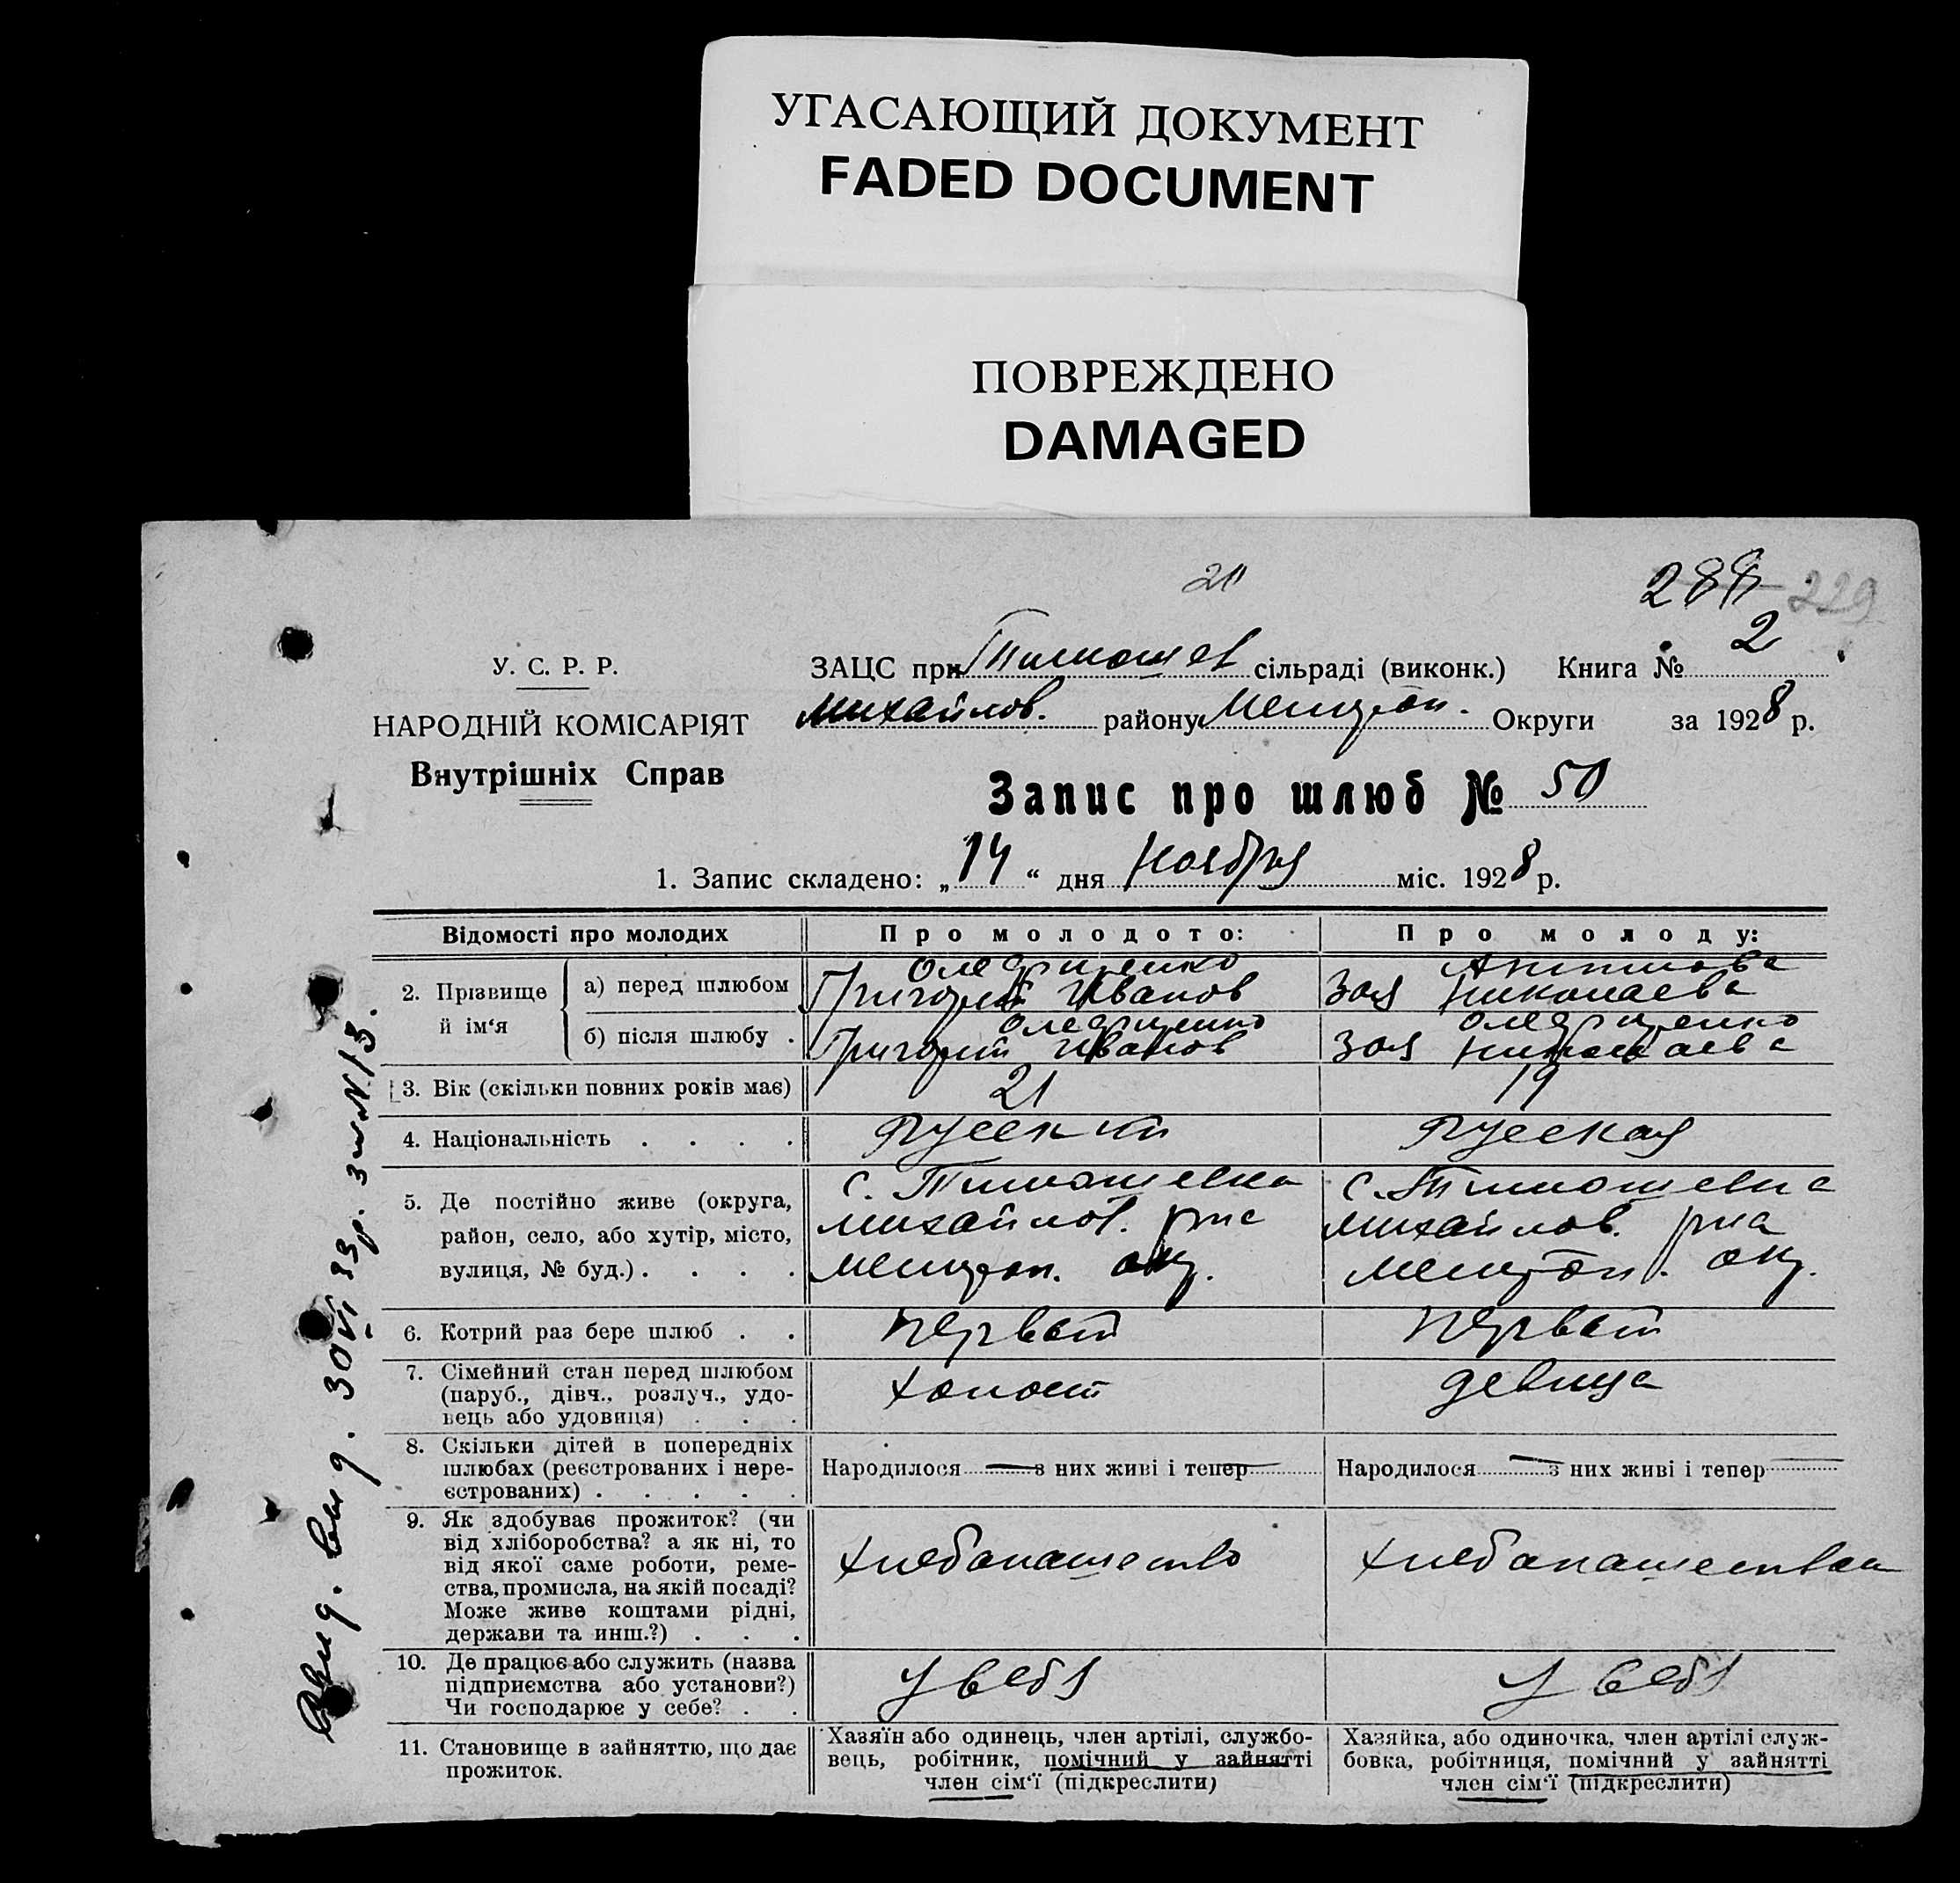 УГАСАЮЩИЙ ДОКУМЕНТ
FADED DOCUMENT
ПОВРЕЖДЕНО
DAMAGED
288 229
У. С. Р. Р.
НАРОДНІЙ КОМІСАРІЯТ
Внутрішніх Справ
ЗАЦС при Тимошев сільраді (виконк.) Книга № 2
Михайлов. району Мелитоп. Округи за 1928 р.
Запис про шлюб № 50
1. Запис складено: „14“ дня Ноября міс. 1928 р.
Відомості про молодих
Про молодого:
Про молоду:
2. Прізвище й ім‘я
а) перед шлюбом
Григорий Иванов
Зоя Николаева
б) після шлюбу .
Григорий Иванов
Зоя Николаева
3. Вік (скільки повних років має)
21
19
4. Національність . . . .
Русский
Русская
5. Де постійно живе (округа,
район, село, або хутір, місто,
вулиця, № буд.) . . . .
с. Тимошевка
Михайлов. рна
Мелитоп. окр.
с. Тимошевка
Михайлов. рна
Мелитоп. окр.
6. Котрий раз бере шлюб . .
первый
первый
7. Сімейний стан перед шлюбом
(паруб., дівч., розлуч., удо-
вець або удовиця) . . .
холост
девица
8. Скільки дітей в попередніх
шлюбах (реєстрованих і нере-
єстрованих) . . . . .
Народилося — з них живі і тепер —
Народилося — з них живі і тепер —
9. Як здобуває прожиток? (чи
від хліборобства? а як ні, то
від якої саме роботи, реме-
ства, промисла, на якій посаді?
Може живе коштами рідні,
держави та инш.?) . . .
хлебопашество
хлебопашеством
10. Де працює або служить (назва
підприємства або установи?)
Чи господарює у себе? . .
У себя
У себя
11. Становище в зайняттю, що дає
прожиток.
Хазяїн або одинець, член артілі, службо-
вець, робітник, помічний у зайнятті
член сім‘ї (підкреслити)
Хазяйка, або одиночка, член артілі служ-
бовка, робітниця, помічний у зайнятті
член сім‘ї (підкреслити)